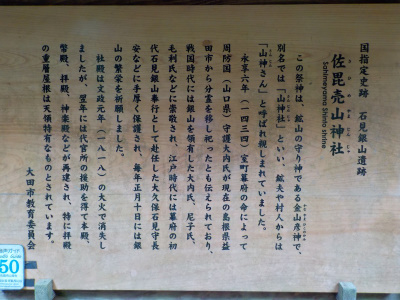 国指定史跡 石見銀山遺跡
佐毘売山神社
さひめやまじんじゃ
Sahimeyama Shinto shrine
この祭神は、鉱山の守り神である金山彦神で、
別名では「山神社」といい、鉱夫や村人からは
「山神さん」と呼ばれ親しまれていました。
永享六年(一四三四)室町幕府の命によって
周防国(山口県)守護大内氏が現在の島根県益
田市から分霊を移し祀ったとも伝えられており、
戦国時代には銀山を領有した大内氏、尼子氏、
毛利氏などに崇敬され、江戸時代には幕府の初
代石見銀山奉行として赴任した大久保石見守長
安などに手厚く保護され、毎年正月十日には銀
山の繁栄を祈願しました。
社殿は文政元年(一八一八)の大火で消失し
ましたが、翌年には代官所の援助を得て本殿、
幣殿、拝殿、神楽殿などが再建され、特に拝殿
の重層屋根は天領特有なものとされています。
大田市教育委員会
50